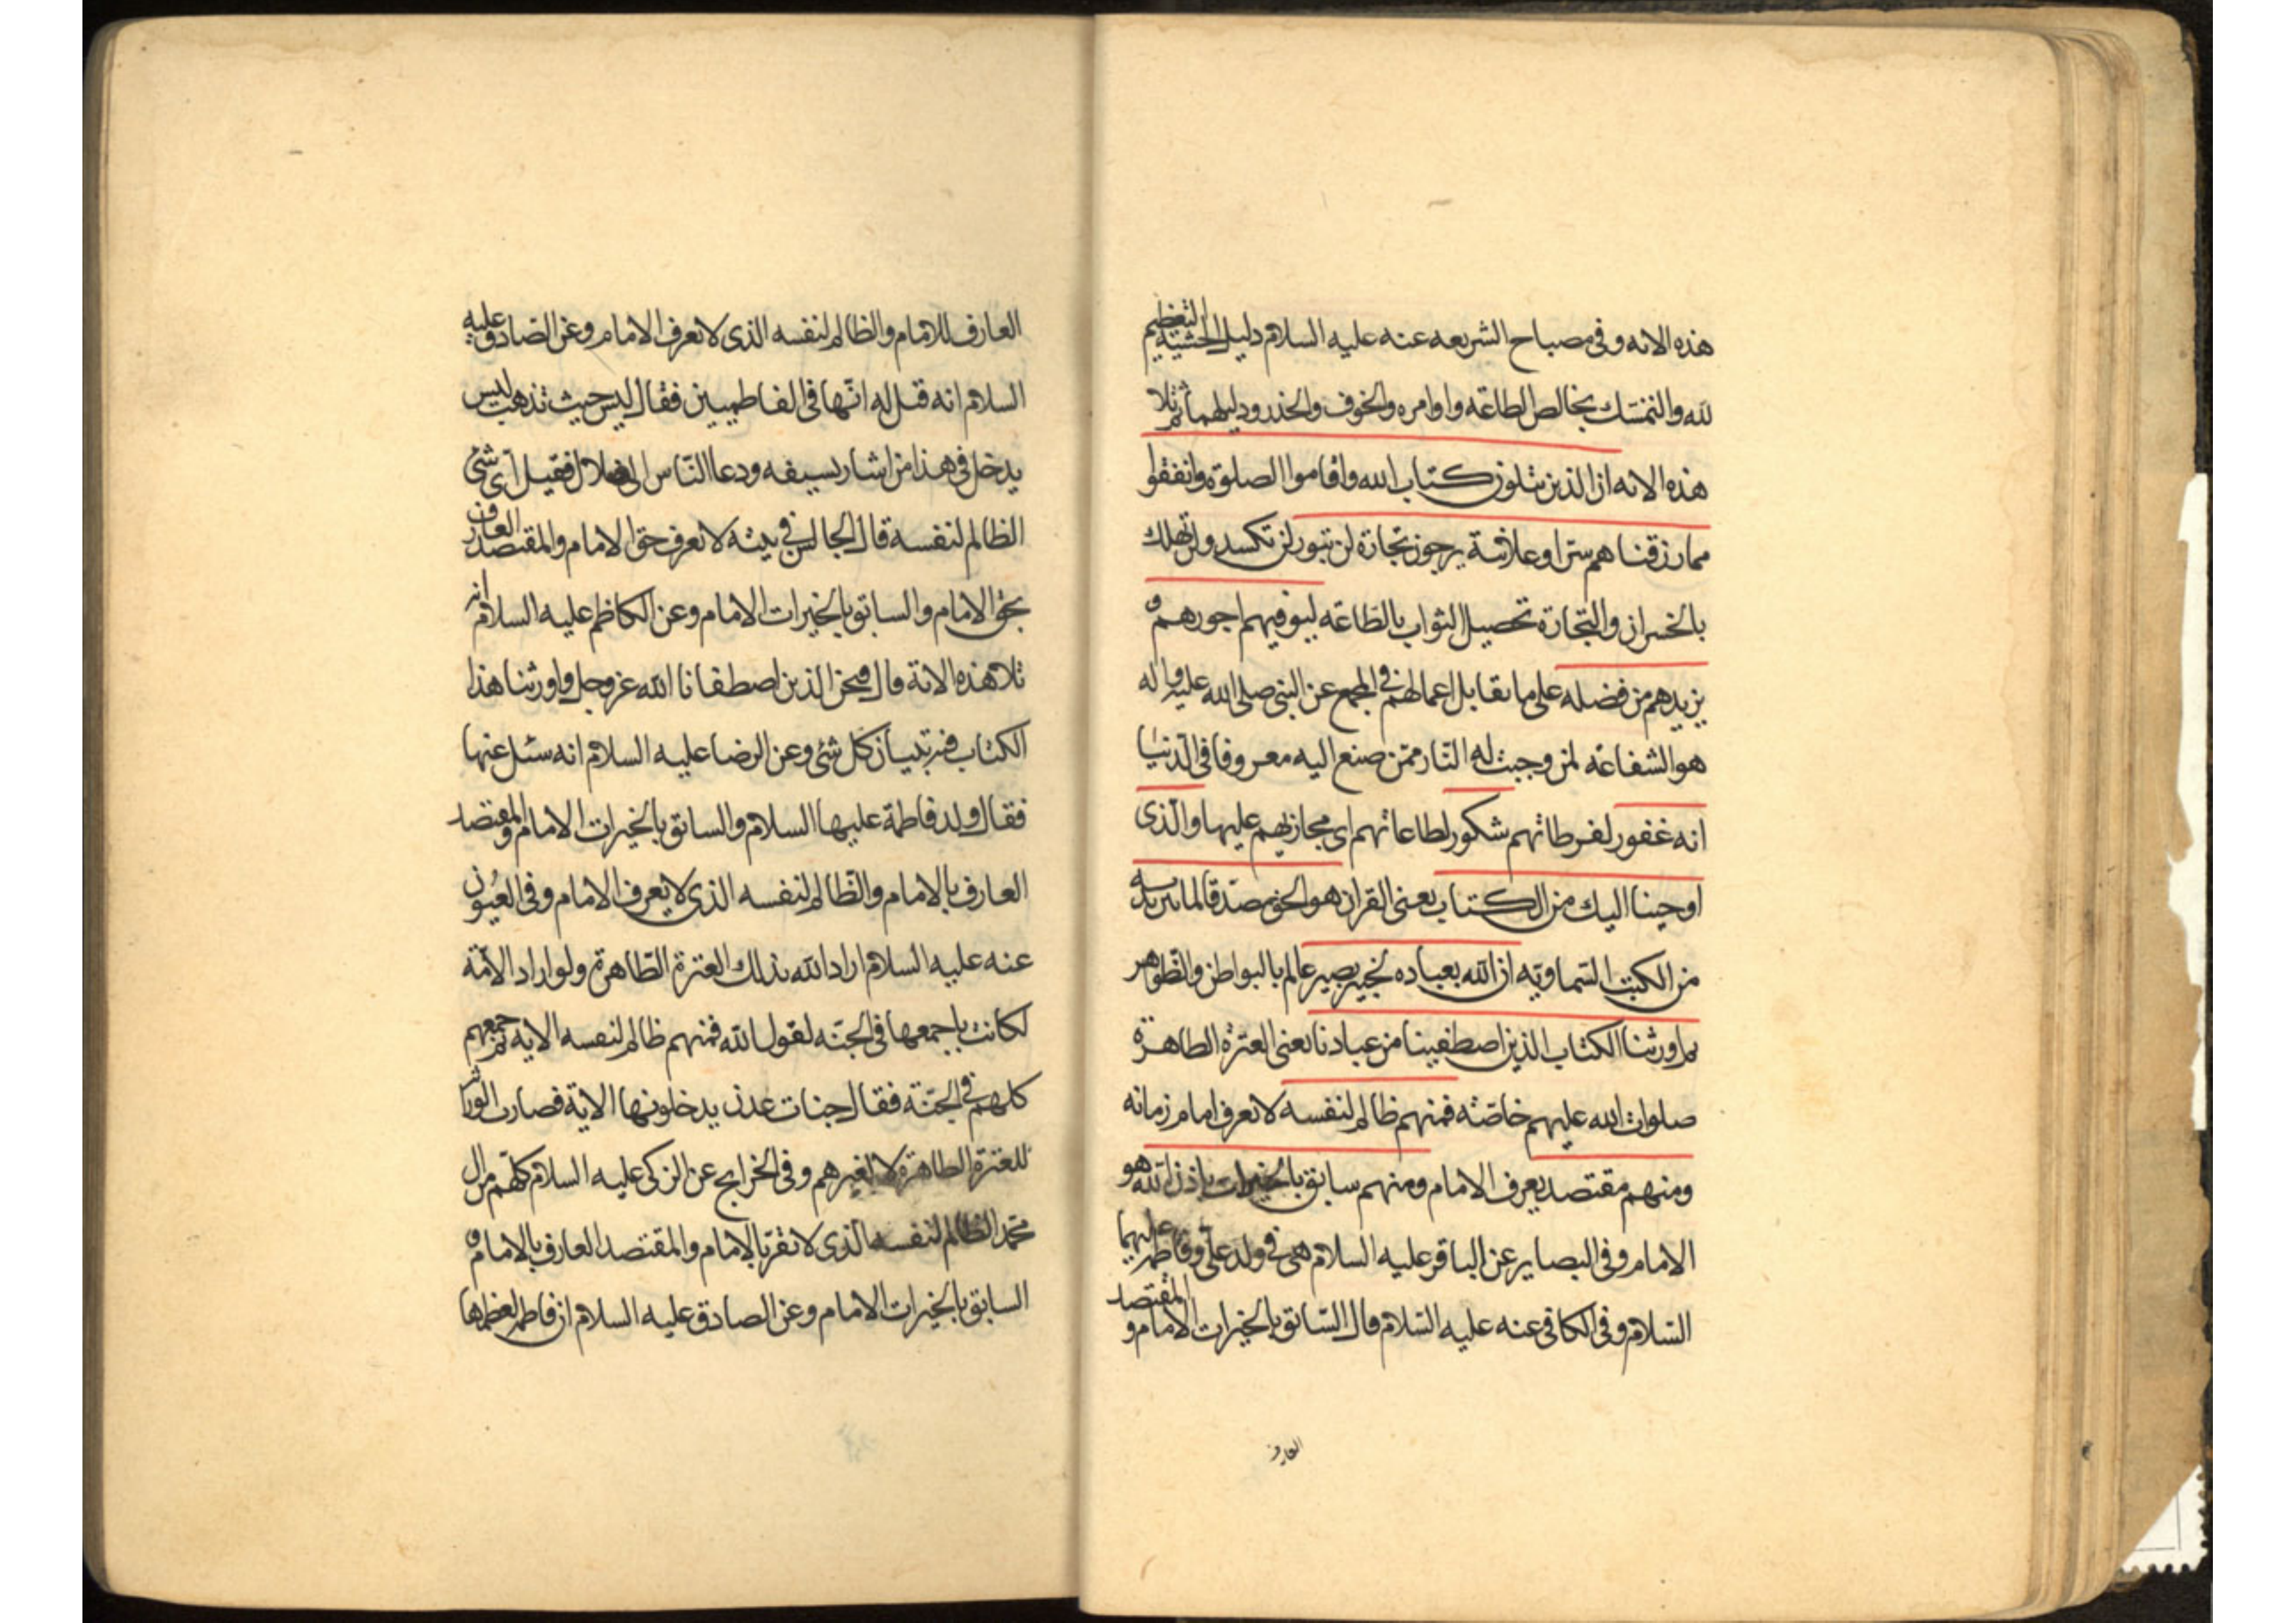 هذه الايه وفى مصباح الشريعه عنه عليه السلام دليل الخشية التعظيم
لله والتمسك بخالص الطاعه واوامره والخوف والحذر ودليلهما ثم تلا
هذه الايه ان الذين يتلون كتاب الله واقاموا الصلوة وانفقوا
مما رزقناهم سرا وعلانية يرجون تجارة لن تبور لن تكسد ولن تهلك
بالخسران والتجارة تحصيل الثواب بالطاعه ليوفيهم اجورهم و
يزيدهم من فضله على ما يقابل اعمالهم فى المجمع عن النبى صلى الله عليه واله
هو الشفاعه لمن وجبت له النار ممن صنع اليه معروفا فى الدنيا
انه غفور لفرطاتهم شكور لطاعاتهم اى مجازيهم عليها والذى
اوحينا اليك من الكتاب يعنى القران هو الحق مصدقا لما بين يديه
من الكتب السماويه ان الله بعباده لخبير بصير عالم بالبواطن والظواهر
ثم اورثنا الكتاب الذين اصطفينا من عبادنا يعنى العترة الطاهرة
صلوات الله عليهم خاصه فمنهم ظالم لنفسه لا يعرف امام زمانه
ومنهم مقتصد يعرف الامام ومنهم سابق بالخيرات باذن الله هو
الامام وفى البصاير عن الباقر عليه السلام هى فى ولد على وفاطمه عليهما
السلام وفى الكافى عنه عليه السلام قال السابق بالخيرات الامام والمقتصد
العارف
العارف للامام والظالم لنفسه الذى لا يعرف الامام وعن الصادق عليه
السلام انه قيل له انها فى الفاطميين فقال ليس حيث تذهب ليس
يدخل فى هذا من اشار بسيفه ودعا الناس الى ضلال فقيل اى شئ
الظالم لنفسه قال الجالس فى بيته لا يعرف حق الامام والمقتصد العارف
بحق الامام والسابق بالخيرات الامام وعن الكاظم عليه السلام انه
تلا هذه الاية قال فنحن الذين اصطفانا الله عز وجل واورثنا هذا
الكتاب فيه تبيان كل شئ وعن الرضا عليه السلام انه سئل عنها
فقال ولد فاطمة عليها السلام والسابق بالخيرات الامام والمقتصد
العارف بالامام والظالم لنفسه الذى لا يعرف الامام وفى العيون
عنه عليه السلام اراد الله بذلك العترة الطاهرة ولو اراد الامة
لكانت باجمعها فى الجنه لقول الله فمنهم ظالم لنفسه الايه ثم جمعهم
كلهم فى الجنة فقال جنات عدن يدخلونها الاية فصارت الوراثة
للعترة الطاهرة لا لغيرهم وفى الخرايج عن الزكى عليه السلام كلهم من ال
محمد الظالم لنفسه الذى لا يقر بالامام والمقتصد العارف بالامام و
السابق بالخيرات الامام وعن الصادق عليه السلام ان فاطمه لعظمها